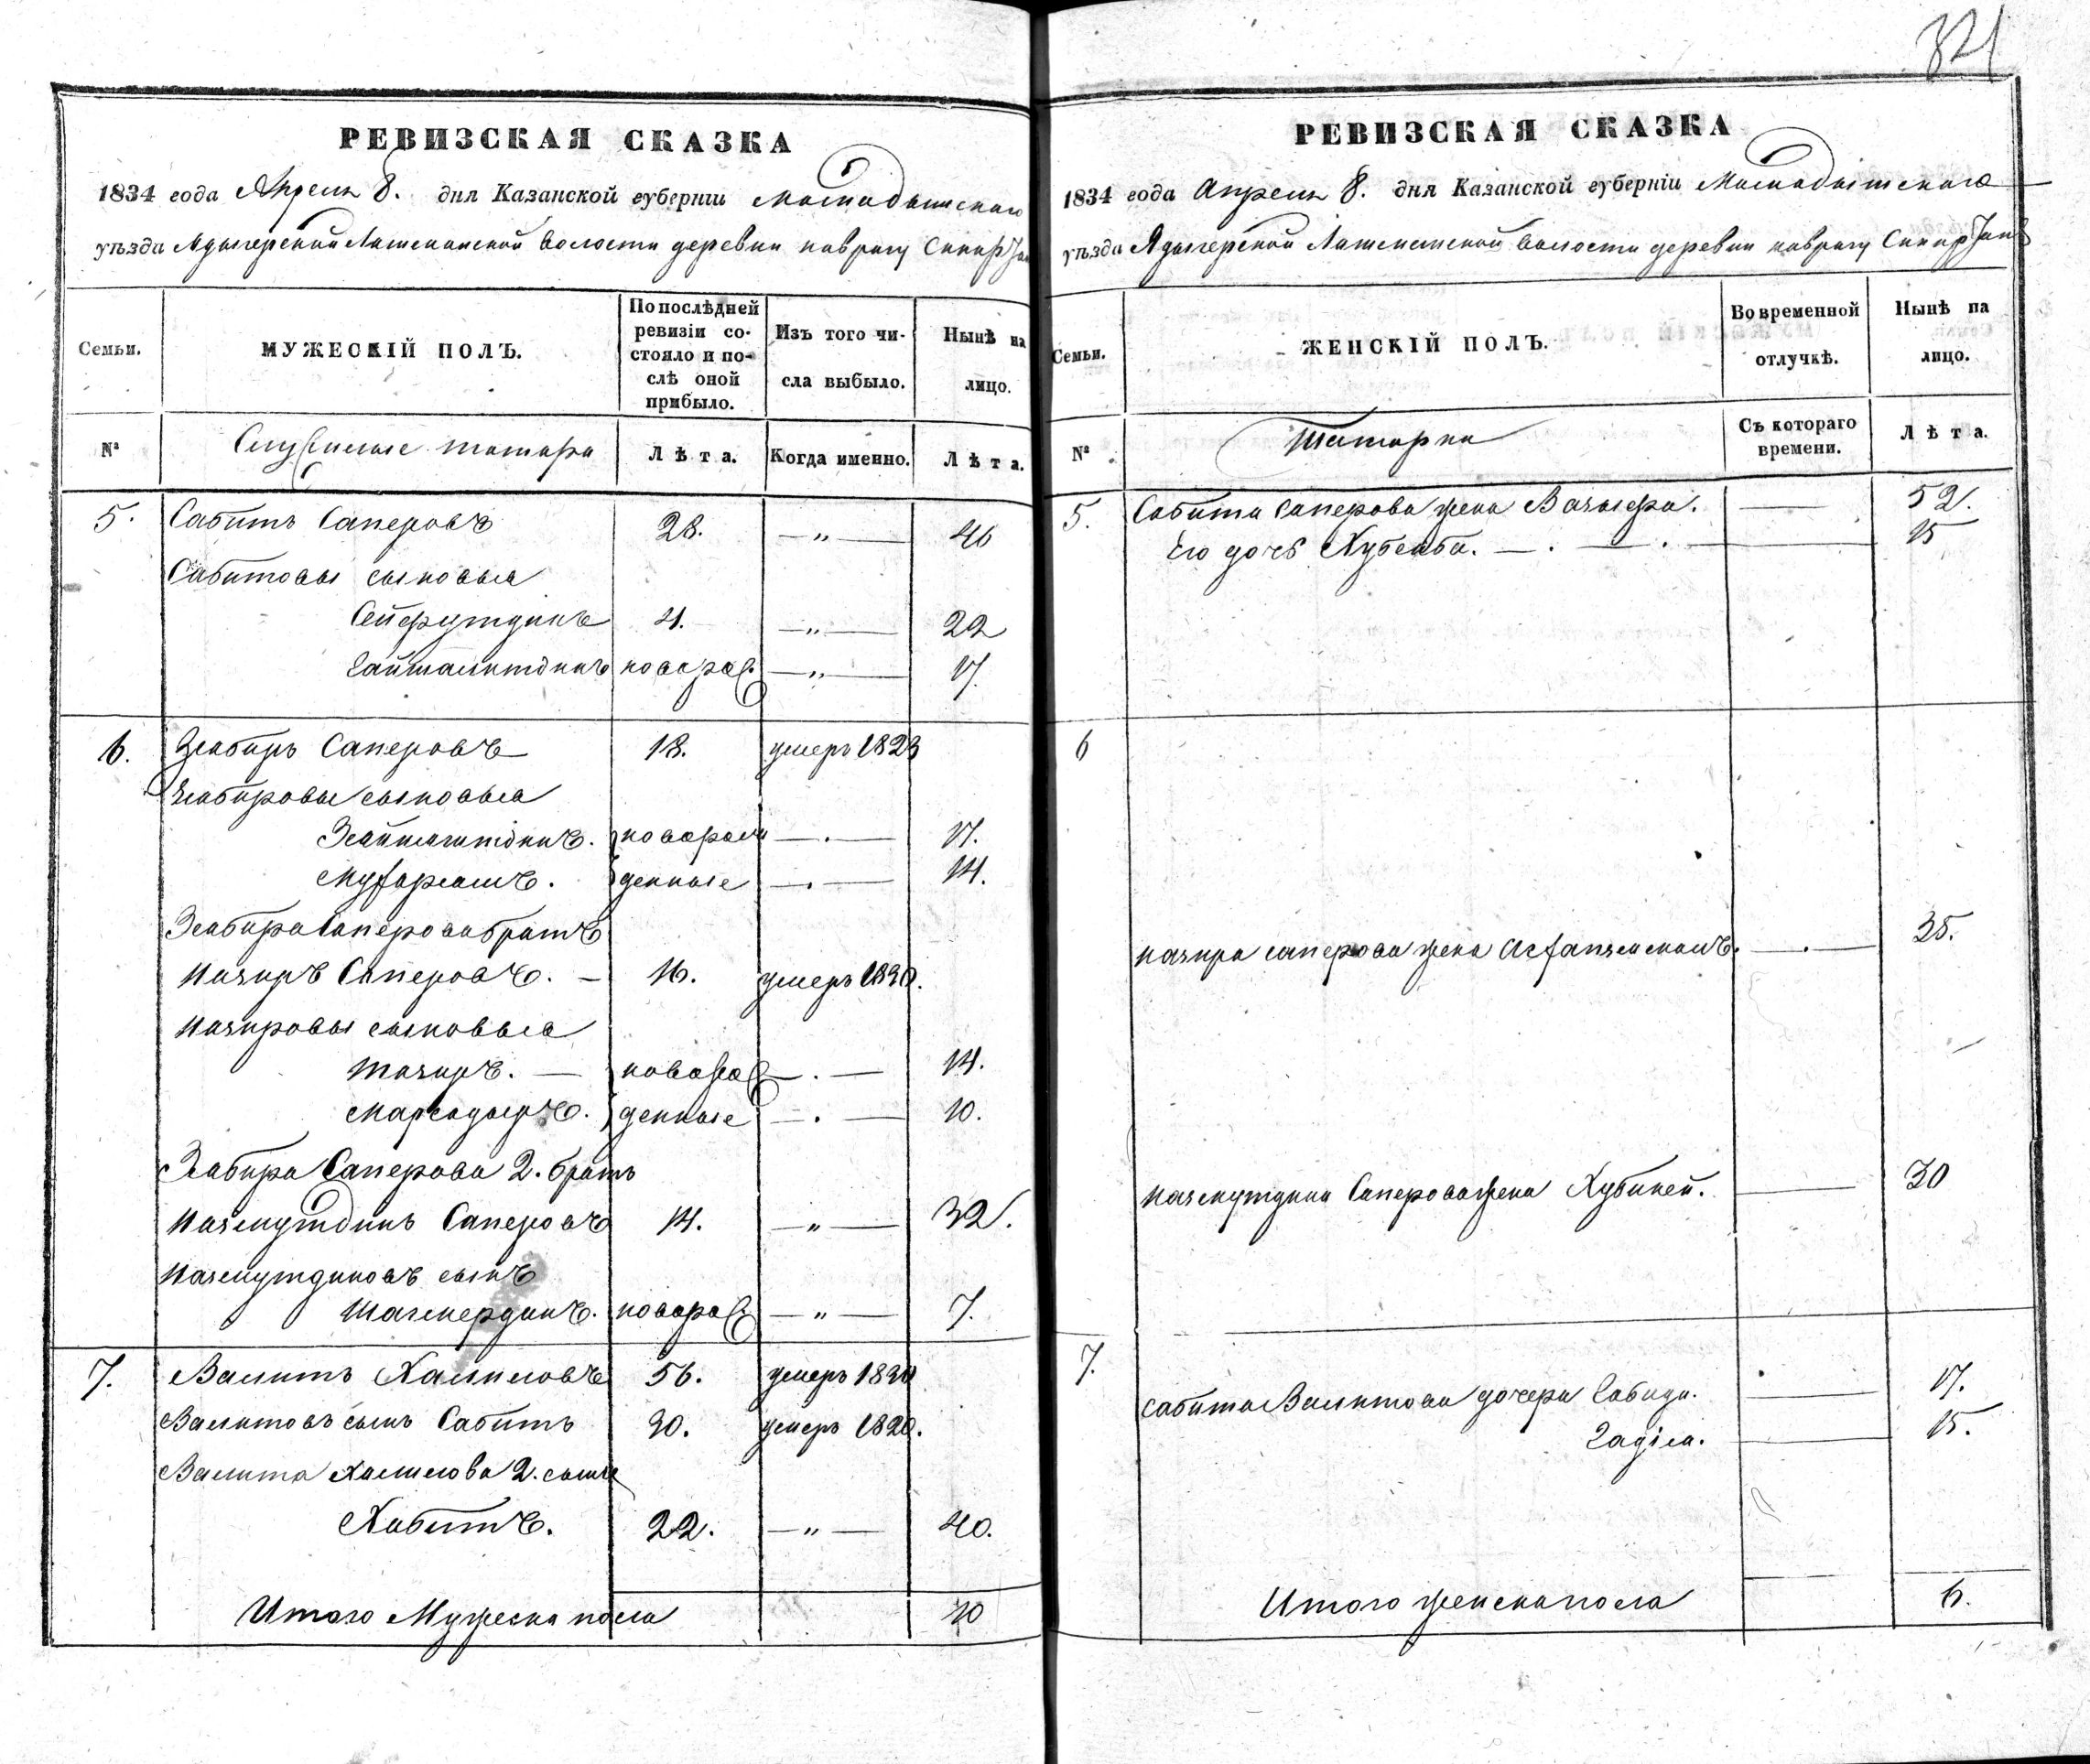 321
РЕВИЗСКАЯ СКАЗКА
1834 года Апреля 8. дня Казанской губерніи Мамадышскаго
уѣзда Адыгерской Ясашной волости деревни
Семьи.
МУЖЕСКІЙ ПОЛЪ.
По послѣдней ревизіи состояло и послѣ оной прибыло.
Изъ того числа выбыло.
Нынѣ на лицо.
№
Служилые татара
Лѣта.
Когда именно.
Лѣта.
5. Сабитъ Саперовъ 28. —„— 46
Сабитовы сыновья
Сейфутдинъ 4. —„— 22
новорож. —„— 17.
6. Забиръ Саперовъ 18. умеръ 1823
Забировы сыновья
новорож 17.
денные 14.
Забира Саперова братъ
Назиръ Саперовъ. — 16. умеръ 1830.
Назировы сыновья
Тазиръ. — новорож 14.
денные 10.
Забира Саперова 2. братъ
Назмутдинъ Саперовъ 14. —„— 32.
Назмутдиновъ сынъ
новорож. —„— 7.
7. Валитъ Халиловъ 56. умеръ 1830
Валитовъ сынъ Сабитъ 30. умеръ 1820.
Валита Халилова 2. сынъ
Хабитъ. 22. —„— 40.
Итого Мужеска пола 10
РЕВИЗСКАЯ СКАЗКА
1834 года Апреля 8. дня Казанской губерніи Мамадышскаго
уѣзда Адыгерской Ясашной волости деревни
Семьи.
ЖЕНСКІЙ ПОЛЪ.
Во временной отлучкѣ.
Нынѣ на лицо.
№
Татарки
Съ котораго времени.
Лѣта.
5. Сабита Саперова жена — 52.
Его дочь Хубейба. — 15
6
Назира Саперова жена — 35.
Назмутдина Саперова жена Хубиней. — 30
7.
Сабита Валитова дочери Габида. — 17.
— 15.
Итого женска пола 6.